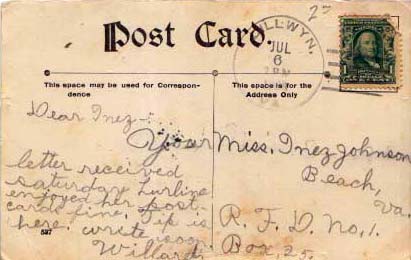 Post Card.
ILLWYN.
JUL
6
This space may be used for Correspon-
dence
This space is for the
Address Only
Dear Inez:
Your
letter received
Saturday Lurline
enjoyed her post-
cards fine. Tip is
here. write
soon.
Willard
597
Miss. Inez Johnson
Beach,
Va.
R. F. D. No. 1.
Box, 25.